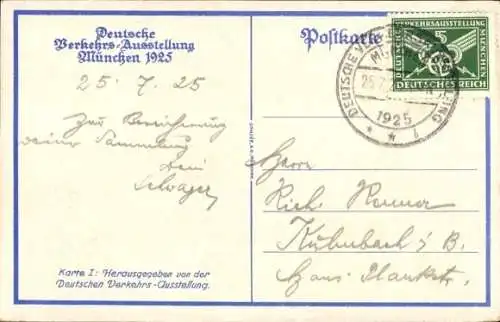 Deutsche
Verkehrs-Ausstellung
München 1925
Postkarte
DEUTSCHE VERKEHRSAUSSTELLUNG MÜNCHEN
5 5
DEUTSCHES REICH
DEUTSCHE
1925
25.7.25
25.7.25
Zur Bereicherung
deiner Sammlung
Dein
Schwager
Herrn
Rich.
i/B.
Hans
Karte I: Herausgegeben von der
Deutschen Verkehrs-Ausstellung.